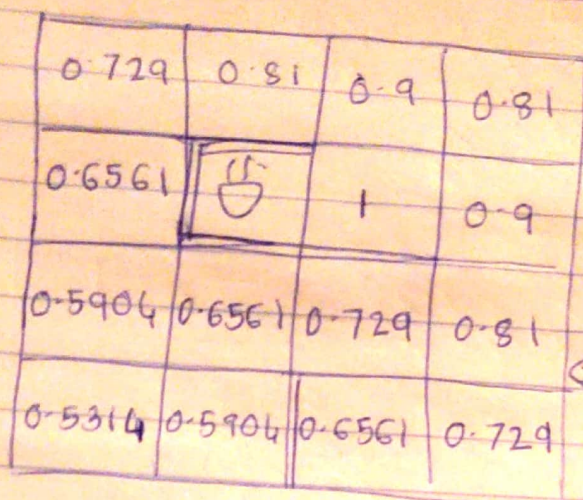 0.729 0.81 0.9 0.81
0.6561 1 0.9
0.5904 0.6561 0.729 0.81
0.5314 0.5904 0.6561 0.729